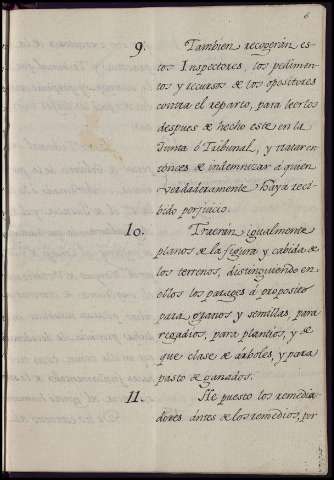 6
9. Tambien recogerán es-
tos Inspectores, los pedimen-
tos y recursos de los opositores
contra el reparto, para leerlos
despues de hecho este en la
Junta ó Tribunal, y tratar en-
tonces de indemnizar á quien
verdaderamente haya reci-
bido perjuicio.
10. Traerán igualmente
planos de la figura y cabida de
los terrenos, distinguiendo en
ellos los parages á proposito
para granos y semillas, para
regadíos, para plantíos, y de
que clase de árboles, y para
pasto de ganados.
11. He puesto los remedia-
dores antes de los remedios, por